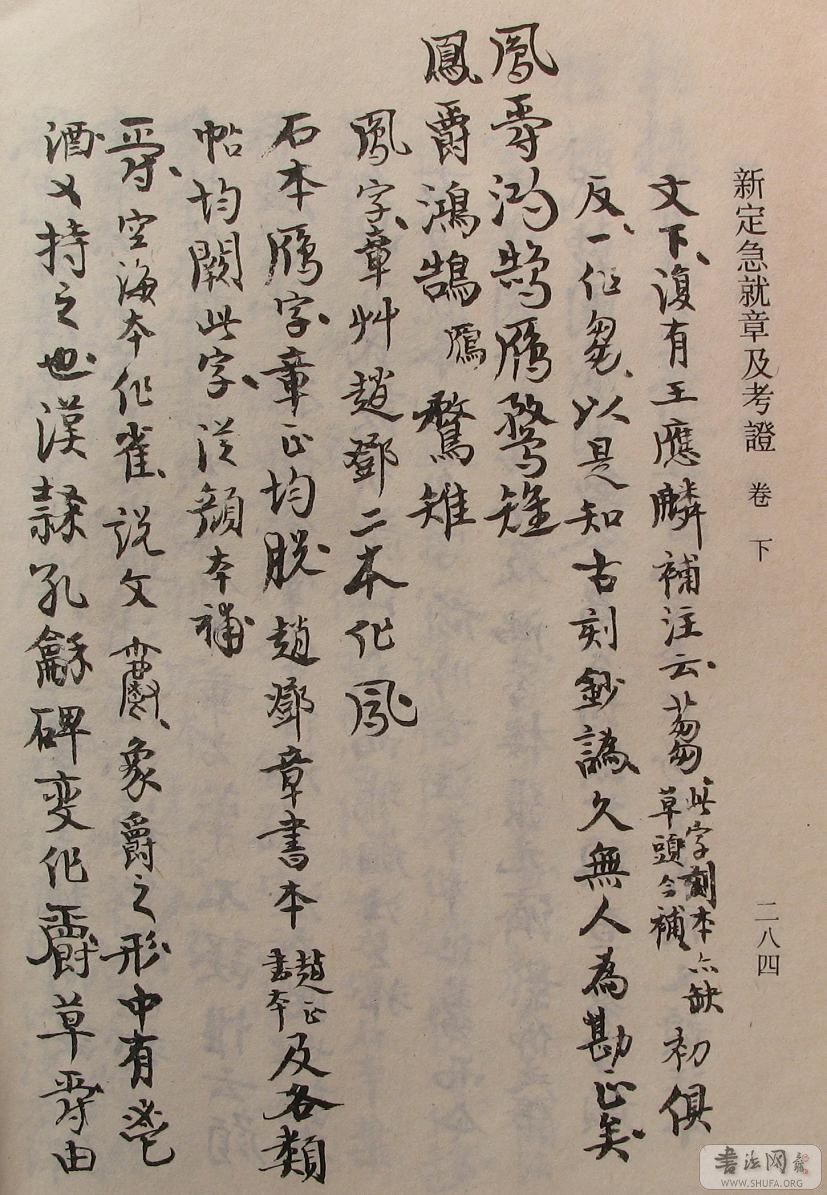 新定急就章及考證 卷下
二八四
文下復有王應麟補注云芻此字刻本亦缺草頭今補初俱
反一作匆以是知古刻鈔譌久無人為勘正矣
鳳爵鴻鵠鴈鶩雉
鳳爵鴻鵠鴈鶩雉
鳳字章艸趙鄧二本作鳳
石本鴈字章正均脫趙鄧章書本趙正書本及各類
帖均闕此字從顏本補
爵空海本作雀說文象爵之形中有鬯
酒又持之也漢隸孔龢碑變作爵草爵由
書法网
WWW.SHUFA.ORG